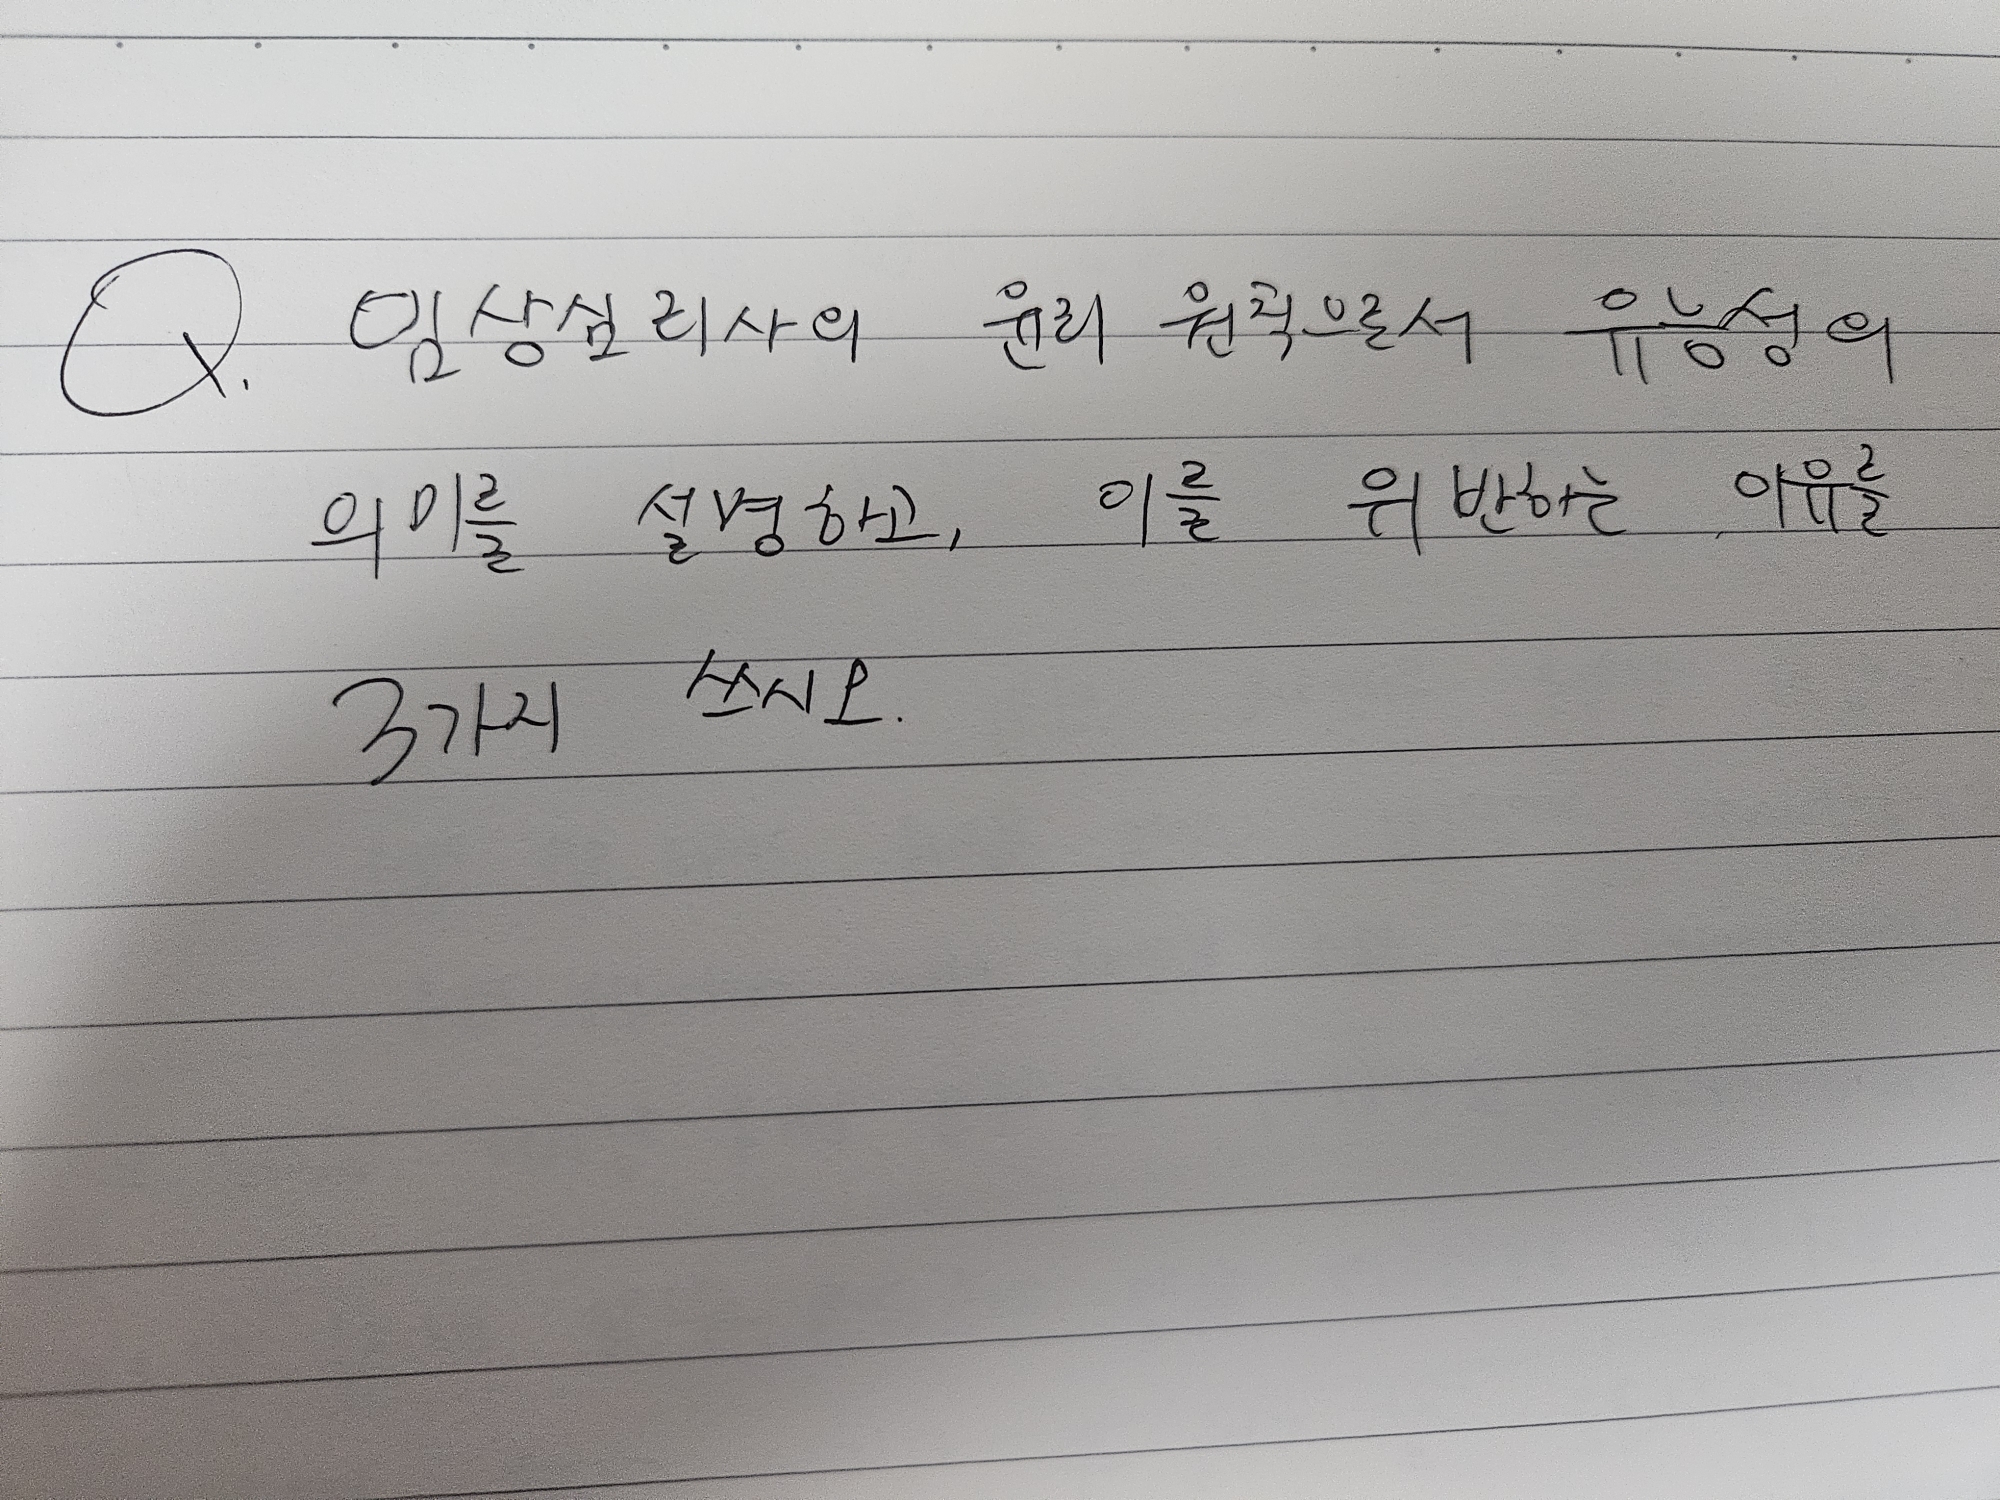 Q. 임상심리사의 윤리 원칙으로서 유능성의
의미를 설명하고, 이를 위반하는 이유를
3가지 쓰시오.